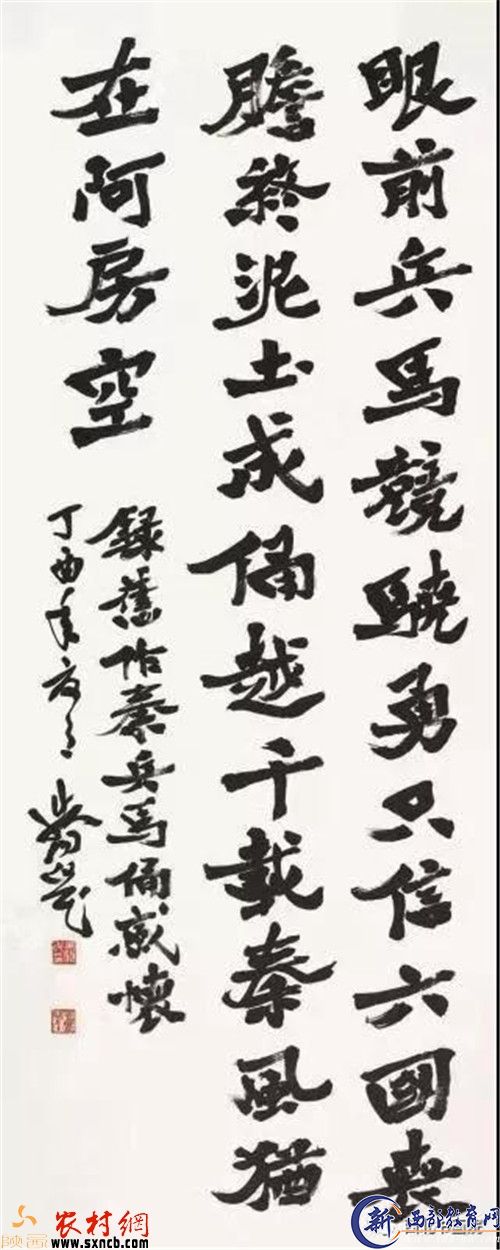 眼前兵馬競驍勇只信六國喪
膽終泥土成俑越千載秦風猶
在阿房空
錄舊作秦兵馬俑感懷
丁酉年
陕西农村網
www.sxncb.com
新西部教育网